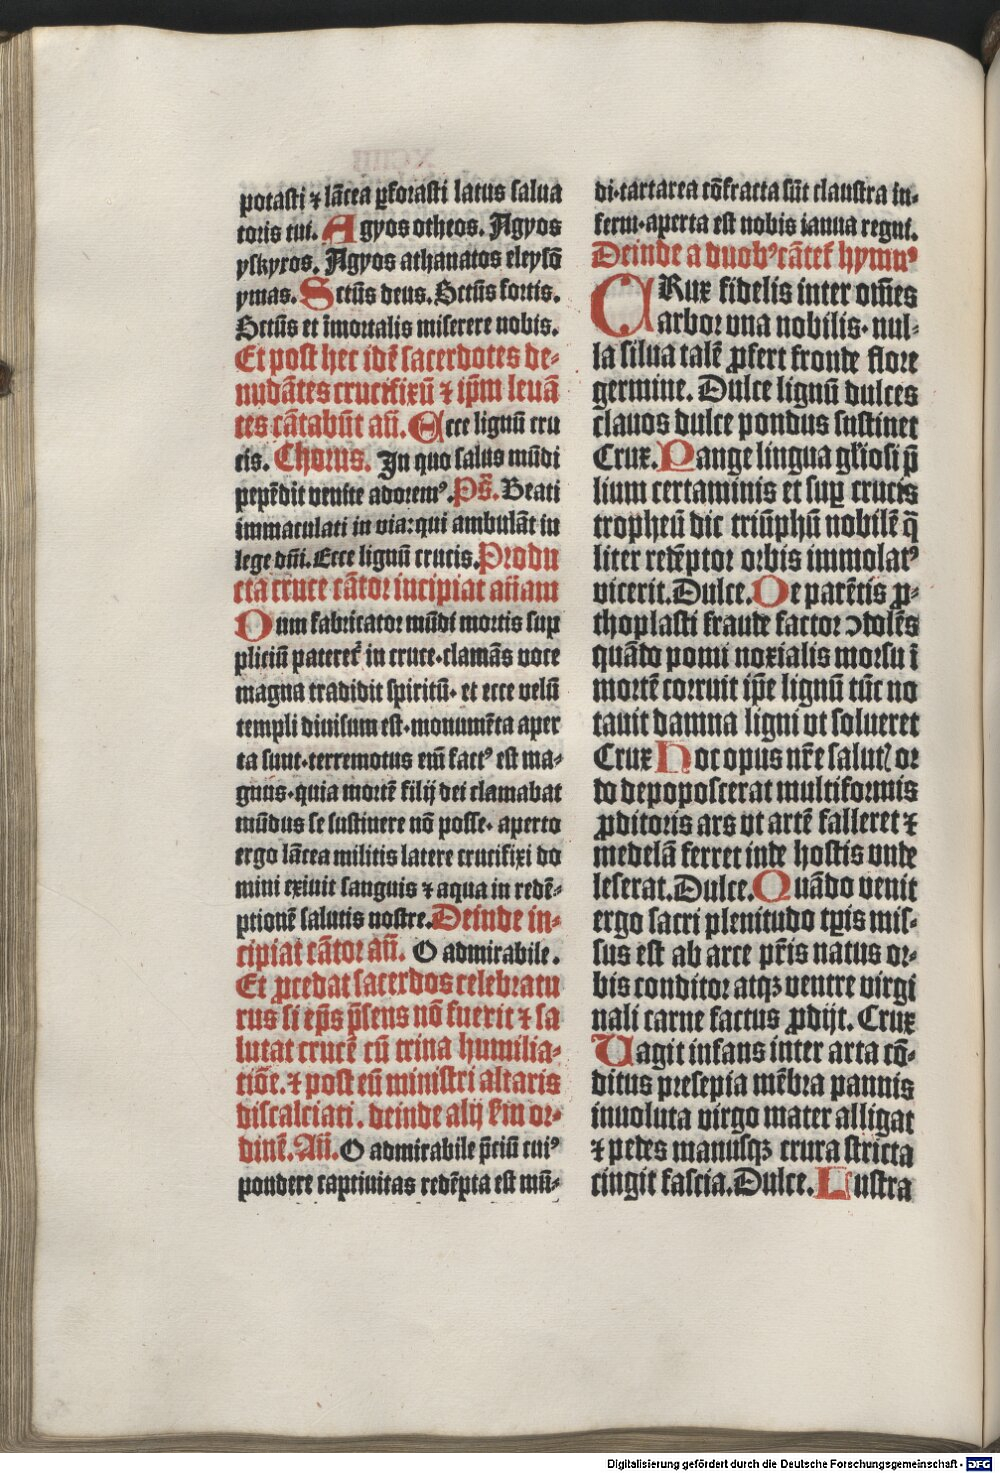 potasti ⁊ lācea ꝑforasti latus salua
toris tui. Agyos otheos. Agyos
yskyros. Agyos athanatos eleysō
ymas. Sctūs deus. Sctūs fortis.
Sctūs et īmortalis miserere nobis.
Et post hec idē sacerdotes de-
nudātes crucifixū ⁊ ip̄m leuā
tes cātabūt an̄. Ecce lignū cru
cis. Chorus. In quo salus mūdi
pepēdit venite adoremꝰ. Ps̄. Beati
immaculati in via: qui ambulāt in
lege dn̄i. Ecce lignū crucis. Produ
cta cruce cātor incipiat an̄am
Dum fabricator mūdi mortis sup
pliciū pateret᷑ in cruce. clamās voce
magna tradidit spiritū. et ecce velū
templi diuisum est. monumēta aper
ta sunt. terremotus em̄ factꝰ est ma-
gnus. quia mortē filij dei clamabat
mūdus se sustinere nō posse. aperto
ergo lācea militis latere crucifixi do
mini exiuit sanguis ⁊ aqua in redē-
ptionē salutis nostre. Deinde in-
cipiat cātor an̄. O admirabile.
Et ꝓcedat sacerdos celebratu
rus si ep̄s p̄sens nō fuerit ⁊ sa
lutat crucē cū trina humilia-
tiōe. ⁊ post eū ministri altaris
discalciati. deinde alij s̄m or-
dinē. An̄. O admirabile p̄ciū cuiꝰ
pondere captiuitas redēpta est mū-
di. tartarea cōfracta sūt claustra in-
ferni. aperta est nobis ianua regni.
Deinde a duobꝰ cātet᷑ hymnꝰ
CRux fidelis inter om̄es
arbor vna nobilis. nul-
la silua talē ꝓfert fronde flore
germine. Dulce lignū dulces
clauos dulce pondus sustinet
Crux. Pange lingua gl'iosi p̄
lium certaminis et suꝑ crucis
tropheū dic triūphū nobilē q̄
liter redēptor orbis immolatꝰ
vicerit. Dulce. De parētis ꝓ-
thoplasti fraude factor ↄdolēs
quādo pomi noxialis morsu ī
mortē corruit ip̄e lignū tūc no
tauit damna ligni vt solueret
Crux Hoc opus nr̄e salutꝭ or
do depoposcerat multiformis
ꝓditoris ars vt artē falleret ⁊
medelā ferret inde hostis vnde
leserat. Dulce. Quādo venit
ergo sacri plenitudo tp̄is mis-
sus est ab arce pr̄is natus or-
bis conditor atqꝫ ventre virgi
nali carne factus ꝓdijt. Crux
Vagit infans inter arta cō-
ditus presepia mēbra pannis
inuoluta virgo mater alligat
⁊ pedes manusqꝫ crura stricta
cingit fascia. Dulce. Lustra
Digitalisierung gefördert durch die Deutsche Forschungsgemeinschaft - DFG